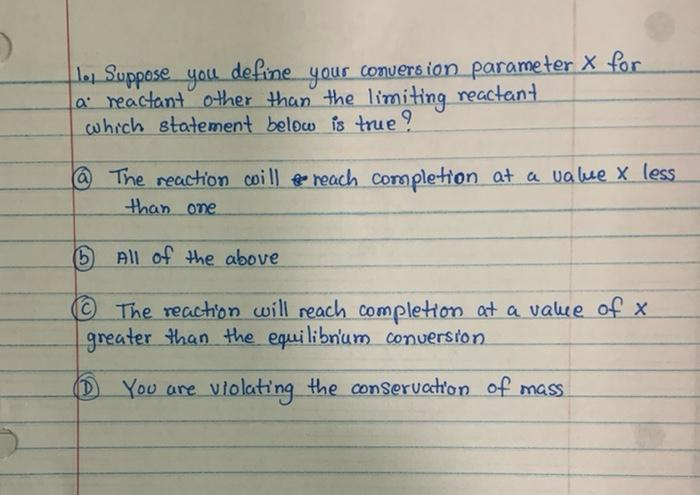 1.) Suppose you define your conversion parameter X for
a reactant other than the limiting reactant
which statement below is true?
ⓐ The reaction will reach completion at a value X less
than one
ⓑ All of the above
ⓒ The reaction will reach completion at a value of x
greater than the equilibrium conversion
Ⓓ You are violating the conservation of mass